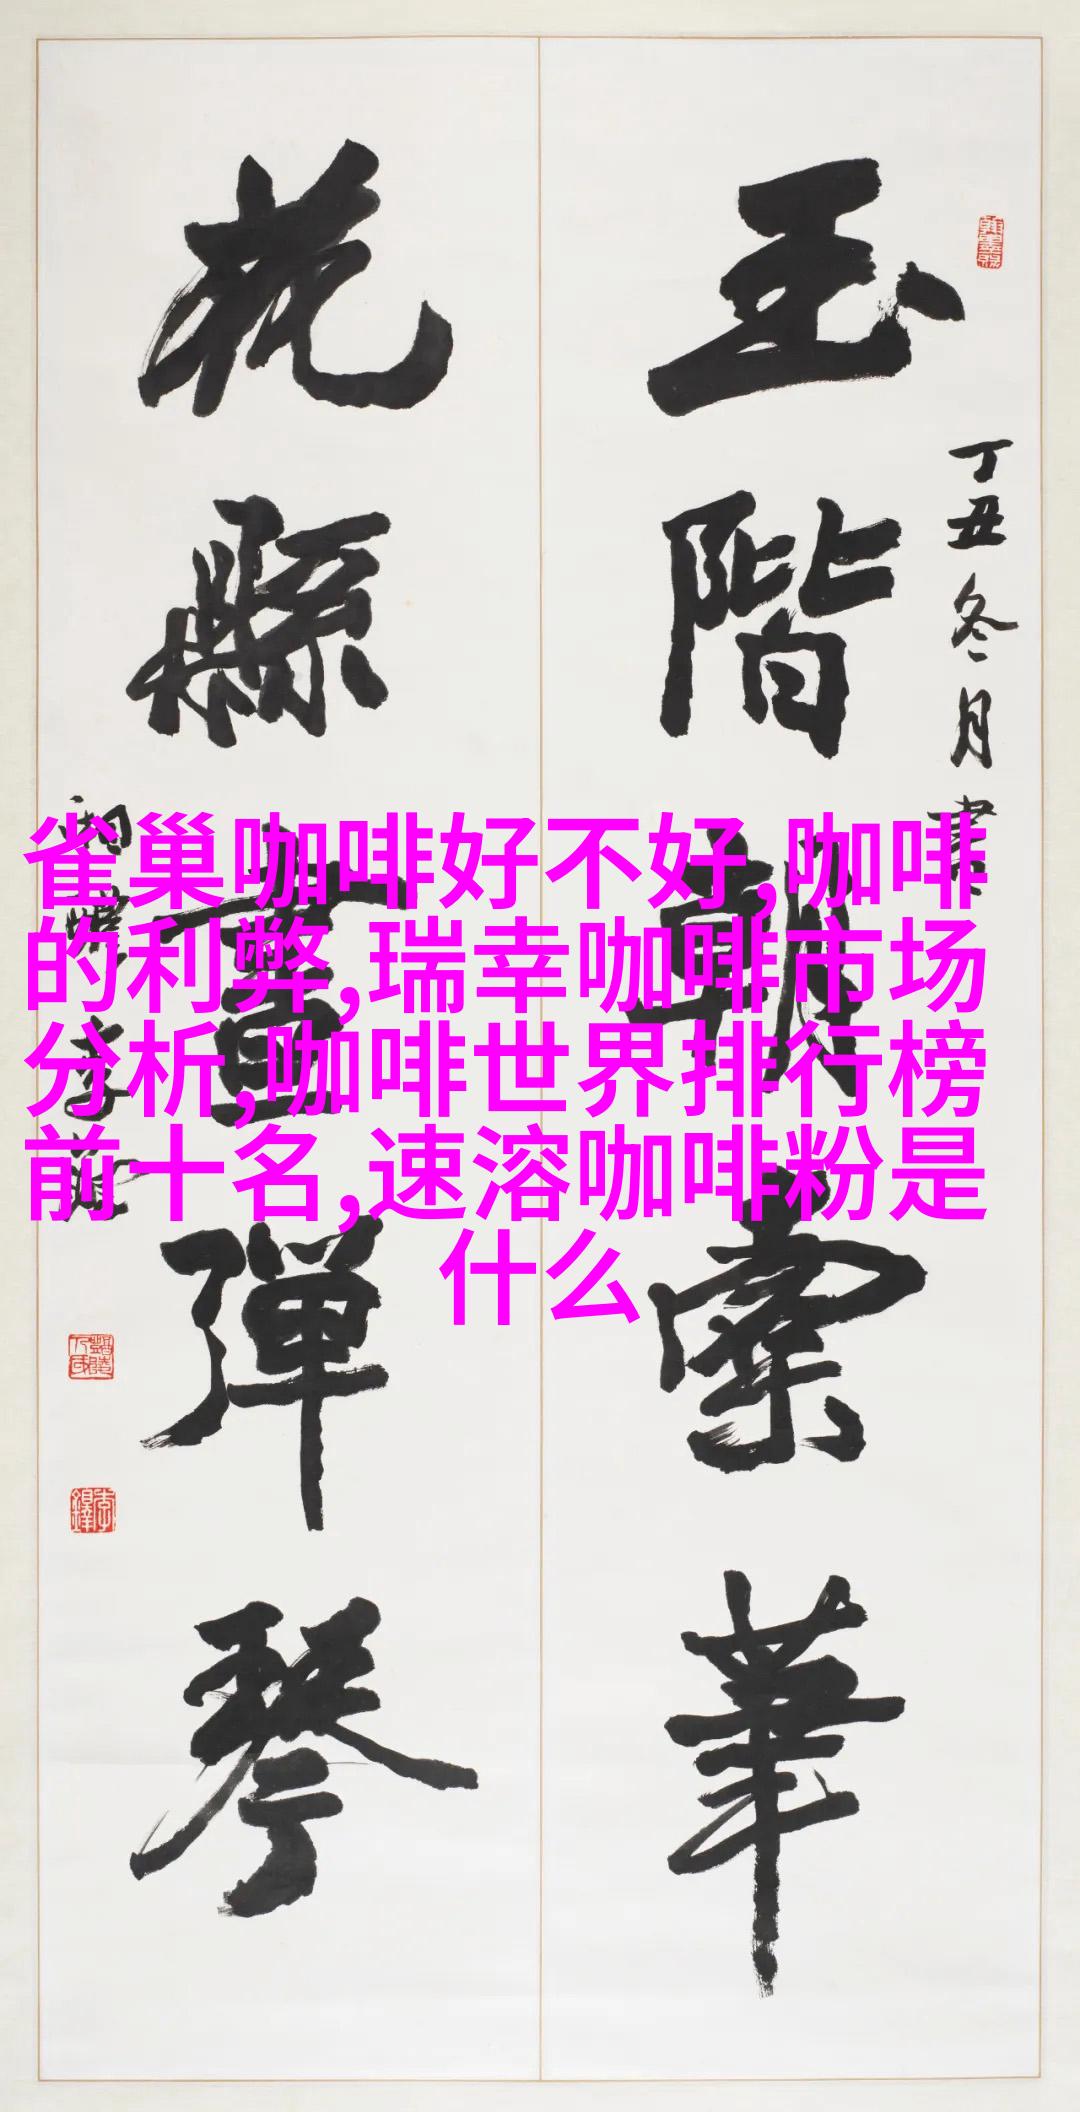 玉階朝索筆
丁丑冬月書
花縣晝彈琴
李鐸
雀巢咖啡好不好,咖啡
的利弊,瑞幸咖啡市场
分析,咖啡世界排行榜
前十名,速溶咖啡粉是
什么